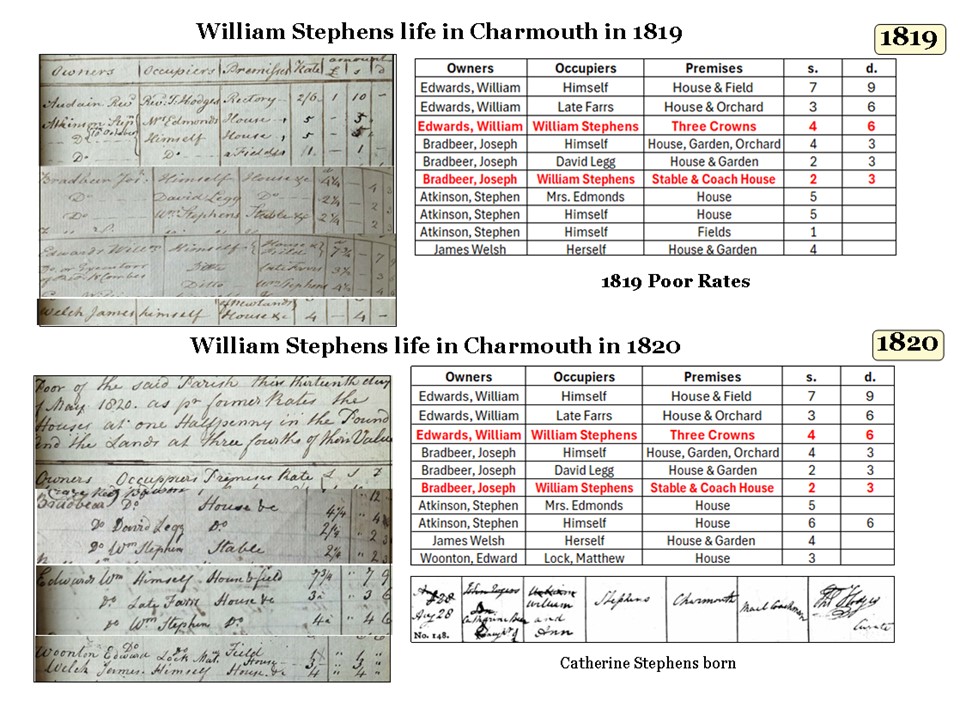 William Stephens life in Charmouth in 1819
1819
Owners Occupiers Premises Rate amount £ s d
Audain Revd Rev. T. Hodges Rectory 2/6 1 10 -
Atkinson Mrs Edmonds House 5 - 5
Do Himself House 5 - 5
Do Do a Fields 1 - 1
Bradbeer Himself House &c 4¼ - 4 3
Do David Legg Do 2¼ - 2 3
Do Wm Stephens Stable &c 2¼ - 2 3
Edwards Willm Himself House & Field 7¾ - 7
Ditto Late Farrs 3½ - 3
Ditto Wm Stephens
of Newlands
Welch James himself House &c 4 - 4 -
Owners Occupiers Premises s. d.
Edwards, William Himself House & Field 7 9
Edwards, William Late Farrs House & Orchard 3 6
Edwards, William William Stephens Three Crowns 4 6
Bradbeer, Joseph Himself House, Garden, Orchard 4 3
Bradbeer, Joseph David Legg House & Garden 2 3
Bradbeer, Joseph William Stephens Stable & Coach House 2 3
Atkinson, Stephen Mrs. Edmonds House 5
Atkinson, Stephen Himself House 5
Atkinson, Stephen Himself Fields 1
James Welsh Herself House & Garden 4
1819 Poor Rates
William Stephens life in Charmouth in 1820
1820
Poor of the said Parish this thirteenth day
of May 1820. as pr former Rates the
Houses at one Halfpenny in the Pound
and the Lands at three fourths of their Value
Owners Occuppiers Premises Rate £ s d
Bradbear Do House &c 4¼ " 4
Do David Legg Do 2¼ " 2 3
Do Wm Stephen Stable 2¼ " 2 3
Edwards Wm Himself House & field 7¾ " 7 9
do Late Farrs House &c " 3 6
do Wm Stephen Do " 4 6
Do Field
Woonton Edward Lock Mat. House 3 " 3 "
Welch James Himself House &c 4 " 4 "
Owners Occupiers Premises s. d.
Edwards, William Himself House & Field 7 9
Edwards, William Late Farrs House & Orchard 3 6
Edwards, William William Stephens Three Crowns 4 6
Bradbeer, Joseph Himself House, Garden, Orchard 4 3
Bradbeer, Joseph David Legg House & Garden 2 3
Bradbeer, Joseph William Stephens Stable & Coach House 2 3
Atkinson, Stephen Mrs. Edmonds House 5
Atkinson, Stephen Himself House 6 6
James Welsh Herself House & Garden 4
Woonton, Edward Lock, Matthew House 3
Aug 28
No. 148.
William and Ann
Stephens
Charmouth
Mail Coachman
Thos Hodges
Curate
Catherine Stephens born